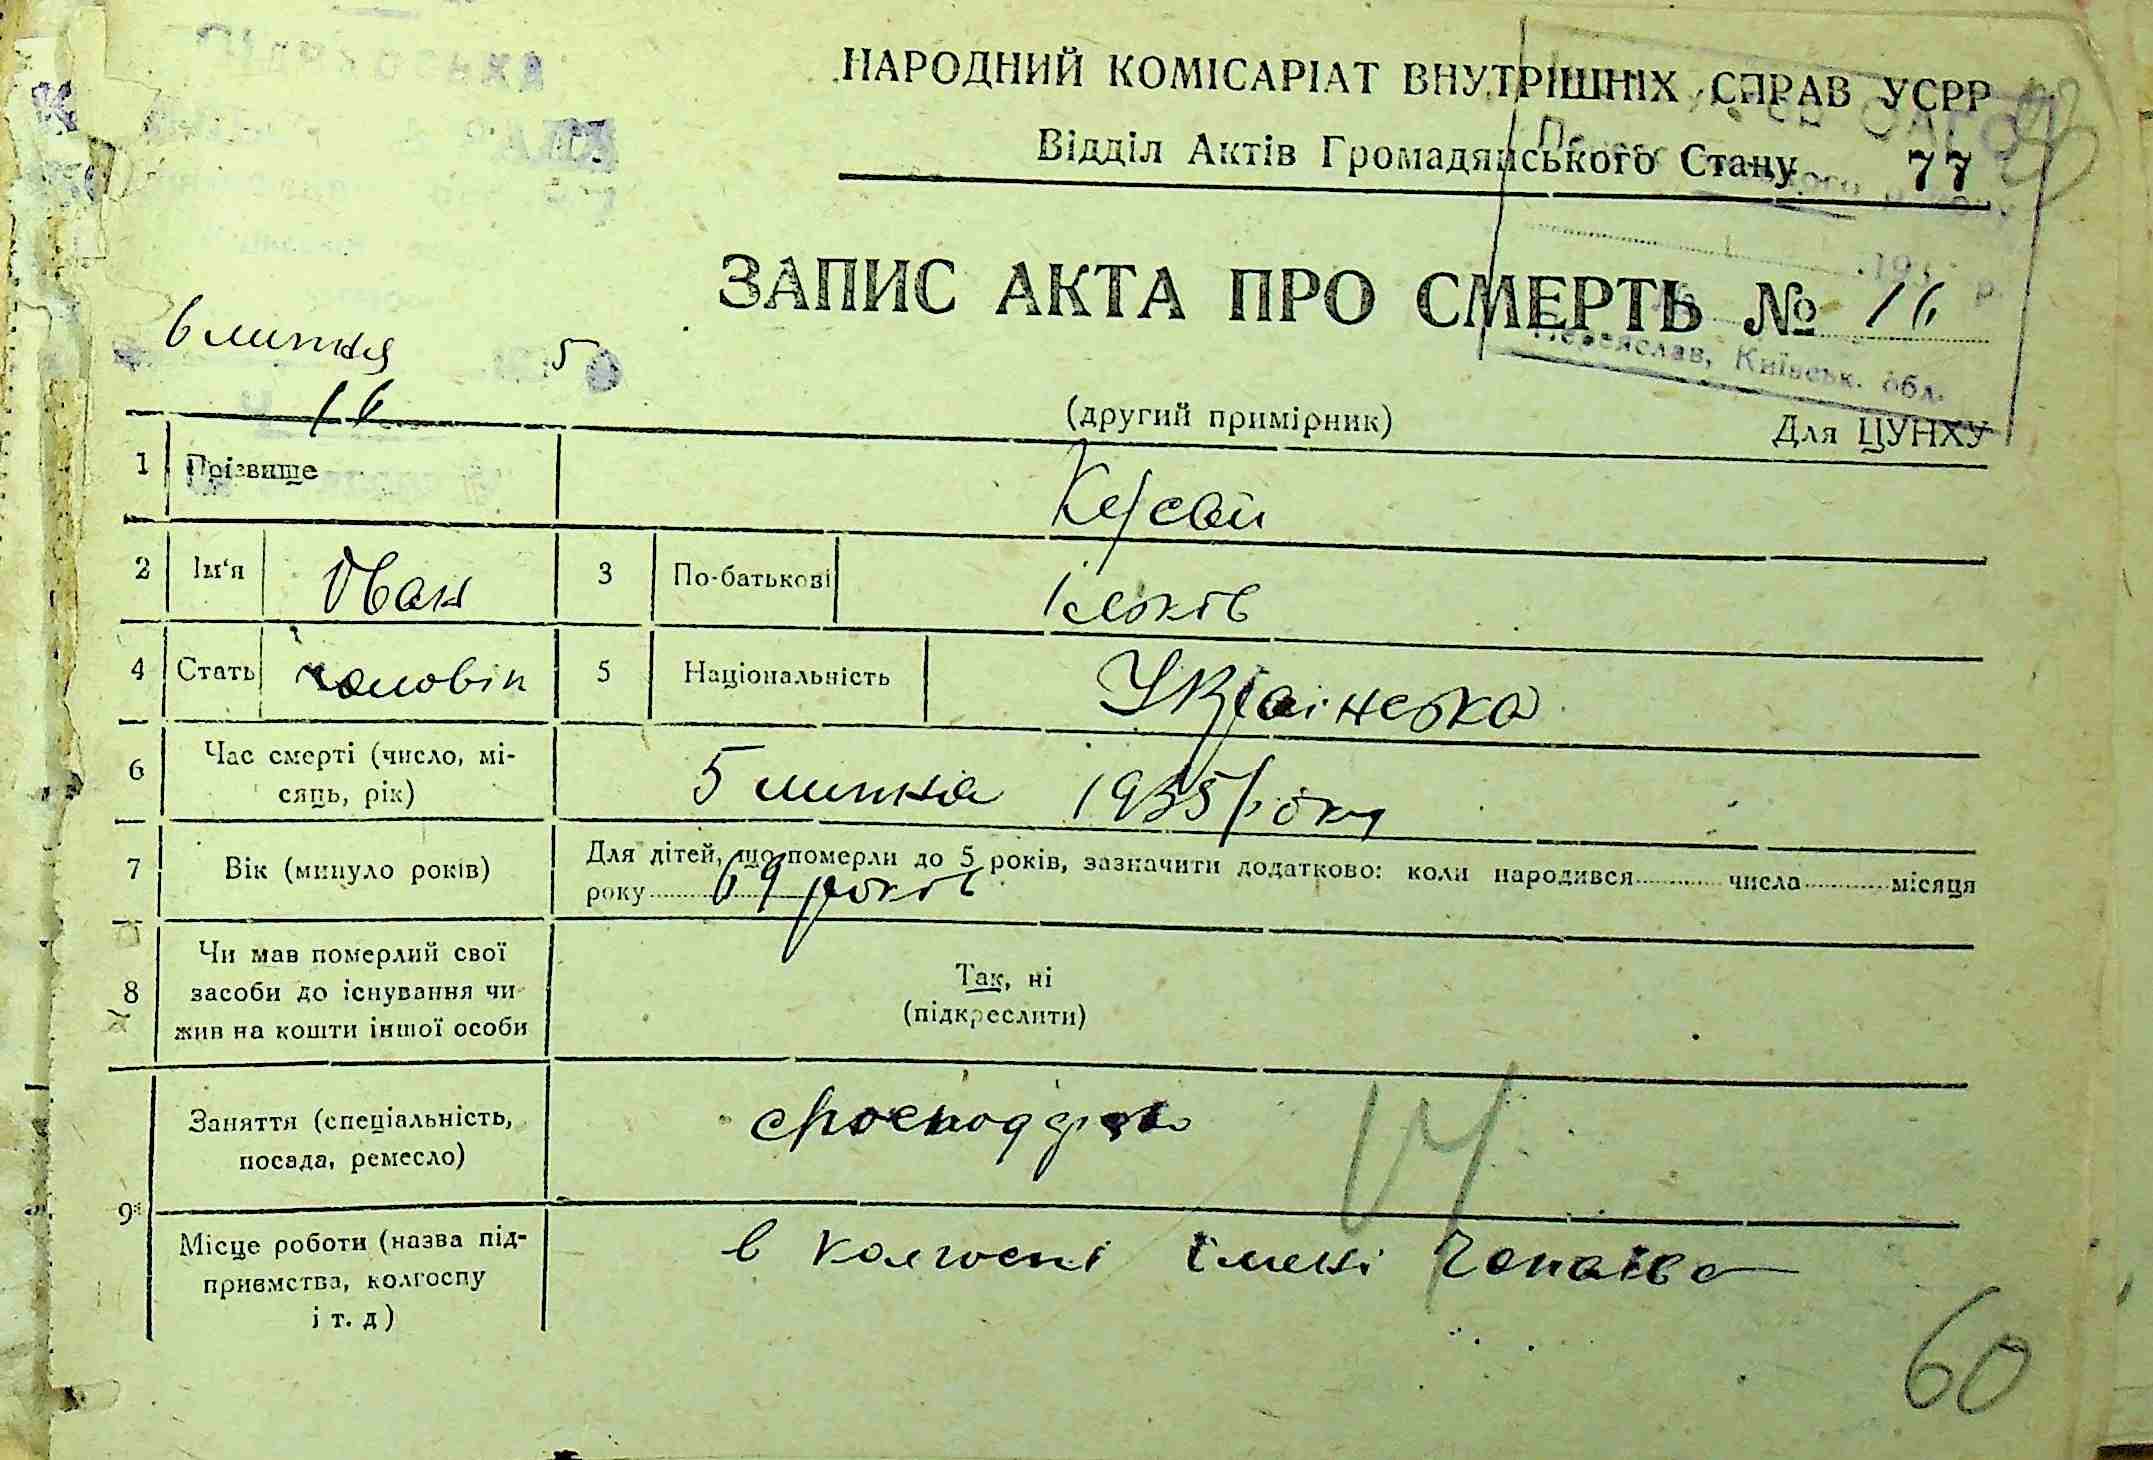 НАРОДНИЙ КОМІСАРІАТ ВНУТРІШНІХ СПРАВ УСРР
Відділ Актів Громадянського Стану 77
ЗАПИС АКТА ПРО СМЕРТЬ № 16
6 липня 5
16
(другий примірник) Для ЦУНХУ
Переяслав, Київськ. обл.
1 Прізвище
2 Ім'я Іван 3 По-батькові
4 Стать чоловік 5 Національність Українська
6 Час смерті (число, мі-
сяць, рік)
5 липня 1935 року
7 Вік (минуло років) Для дітей, що померли до 5 років, зазначити додатково: коли народився числа місяця
року 69 років
8 Чи мав померлий свої
засоби до існування чи
жив на кошти іншої особи
Так, ні
(підкреслити)
9 Заняття (спеціальність,
посада, ремесло)
Місце роботи (назва під-
приємства, колгоспу
і т. д)
в колгоспі імені Чапаєва
60